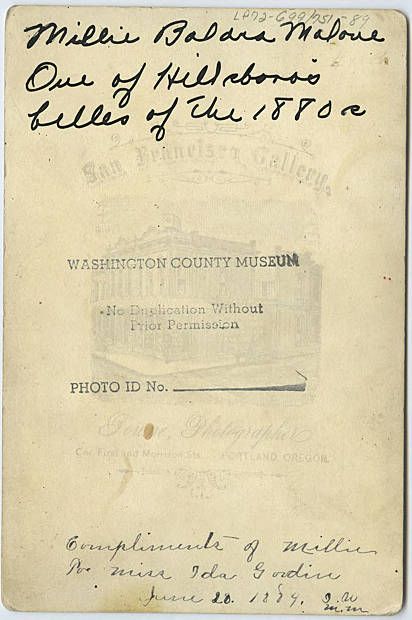 LP72-699/751-89
Millie Baldra Malone
One of Hillsboro's
belles of the 1880s
San Francisco Gallery.
WASHINGTON COUNTY MUSEUM
No Duplication Without
Prior Permission
PHOTO ID No.
Towne, Photographer
Cor. First and Morrison Sts. PORTLAND OREGON.
Compliments of Millie
To Miss Ida Gordin
June 20. 1889.